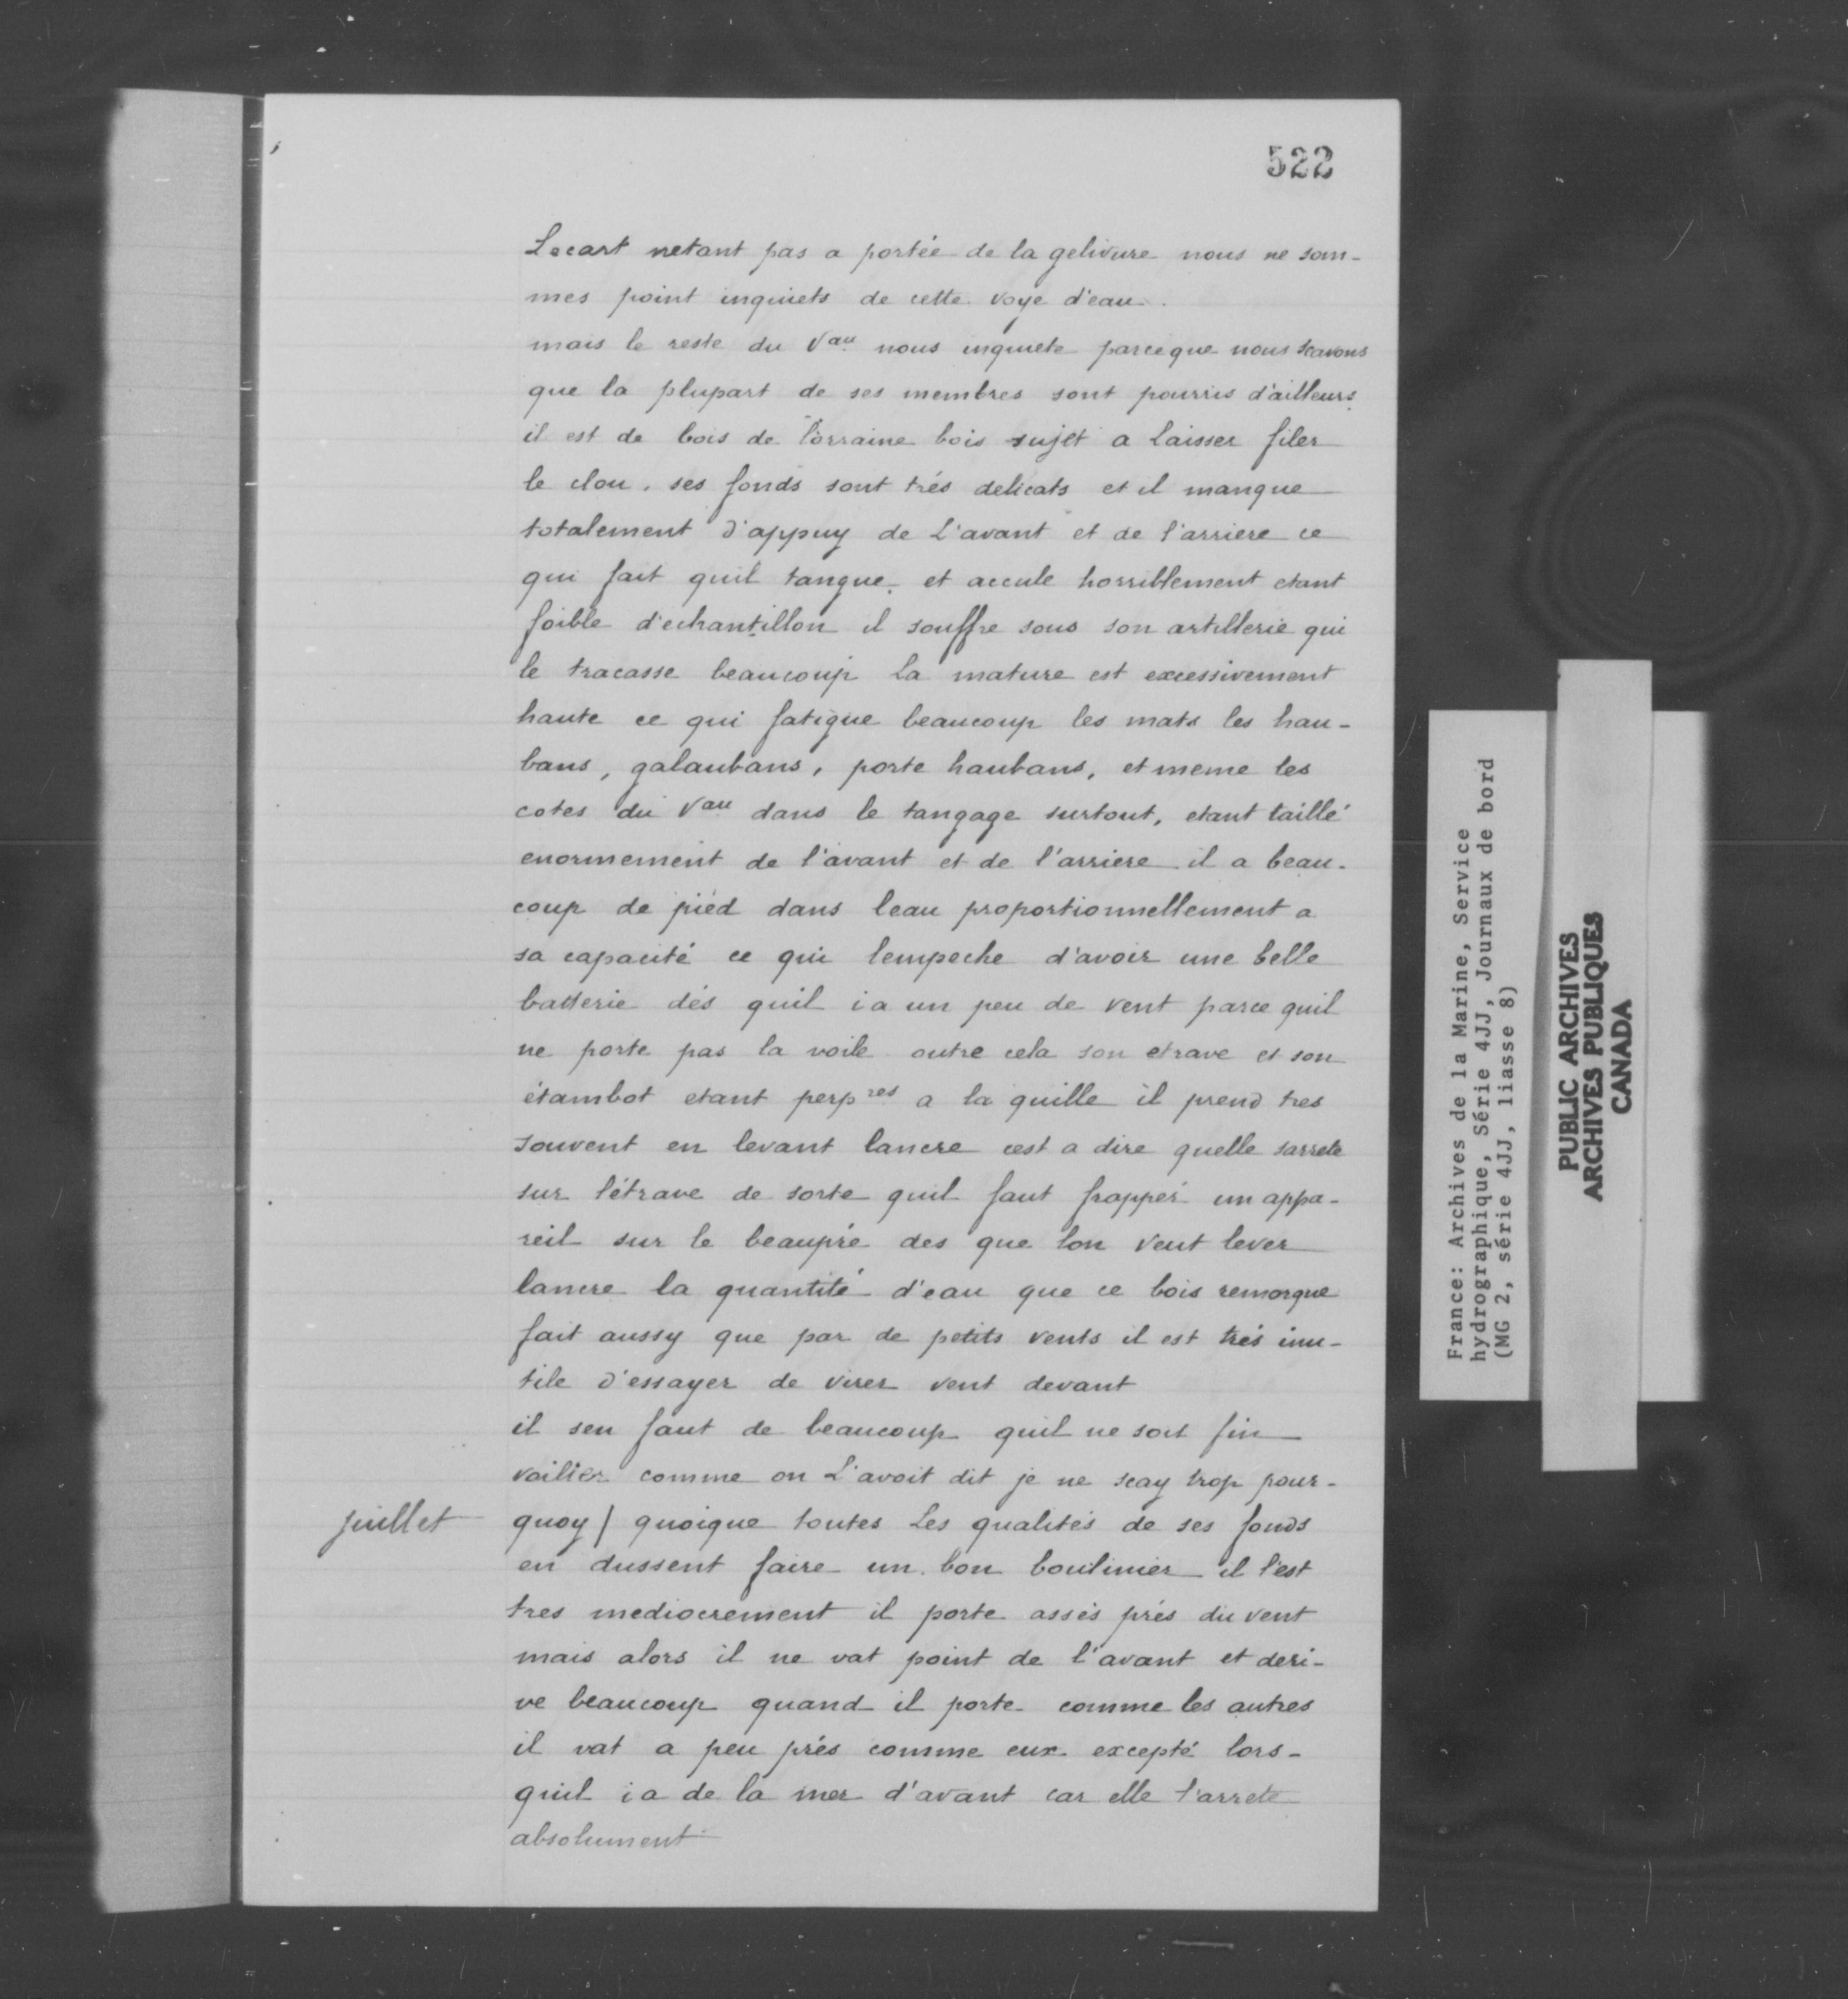 522
Lecart netant pas a portée de la gelivure nous ne som-
mes point inquiets de cette voye d'eau.
mais le reste du Vau nous inquiete parceque nous scavons
que la plupart de ses membres sont pourris d'ailleurs
il est de bois de lorraine bois sujet a laisser filer
le clou. ses fonds sont trés delicats et il manque
totalement d'appuy de L'avant et de l'arriere ce
qui fait quil tangue, et accule horriblement etant
foible d'echantillon il souffre sous son artillerie qui
le tracasse beaucoup La mature est excessivement
haute ce qui fatigue beaucoup les mats les hau-
bans, galaubans, porte haubans, et meme les
cotes du Vau dans le tangage surtout, etant taillé
enormement de l'avant et de l'arriere il a beau-
coup de pied dans leau proportionnellement a
sa capacité ce qui lempeche d'avoir une belle
batterie dés quil i a un peu de vent parce quil
ne porte pas la voile outre cela son etrave et son
étambot etant perpres a la quille il prend tres
souvent en levant lancre cest a dire quelle sarrete
sur l'étrave de sorte quil faut frapper un appa-
reil sur le beaupré des que lon veut lever
lancre la quantité d'eau que ce bois remorque
fait aussy que par de petits vents il est trés inu-
tile d'essayer de virer vent devant
il sen faut de beaucoup quil ne soit fin
voilier comme on L'avoit dit je ne scay trop pour-
juillet quoy / quoique toutes Les qualités de ses fonds
en dussent faire un bon boulinier il l'est
tres mediocrement il porte assés prés du vent
mais alors il ne vat point de l'avant et deri-
ve beaucoup quand il porte comme les autres
il vat a peu prés comme eux excepté lors-
quil i a de la mer d'avant car elle l'arrete
absolument
France: Archives de la Marine, Service
hydrographique, Série 4JJ, Journaux de bord
(MG 2, série 4JJ, liasse 8)
PUBLIC ARCHIVES
ARCHIVES PUBLIQUES
CANADA